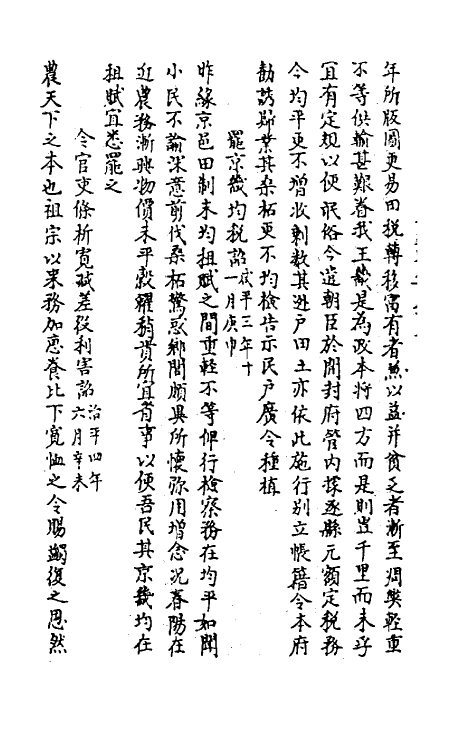 年所版圖更易田稅轉移富有者無以益并貧乏者漸至凋弊輕重
不等供輸甚艱眷我王畿是為政本將四方而是則豈千里而未孚
宜有定規以便氓俗今遣朝臣於開封府管內採逐縣元額定稅務
令均平更不增收剩數其逃户田土亦依此施行别立帳籍令本府
勸誘歸業其桑柘更不均檢告示民户廣令種植
罷京畿均稅詔咸平三年十一月庚申
昨緣京邑田制未均租賦之間重輕不等俾行檢察務在均平如聞
小民不諭深意前伐桑柘驚惑鄉閭頗異所懷弥用增念况春陽在
近農務漸興物價未平穀糴稍貴所宜省事以便吾民其京畿均在
租賦宜悉罷之
令官吏條析寬賦差役利害詔治平四年六月辛未
農天下之本也祖宗以来務加惠養比下寬恤之令賜蠲復之恩然